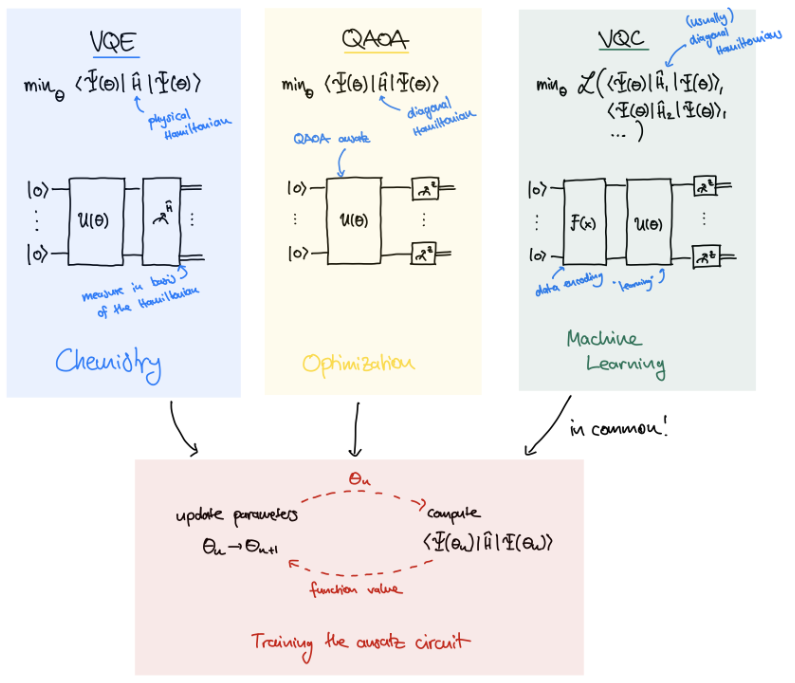 VQE
min_θ ⟨Ψ(θ)|Ĥ|Ψ(θ)⟩
physical
Hamiltonian
|0⟩
U(θ)
Ĥ
⋮
|0⟩
measure in basis
of the Hamiltonian
Chemistry
QAOA
min_θ ⟨Ψ(θ)|Ĥ|Ψ(θ)⟩
diagonal
Hamiltonian
QAOA ansatz
|0⟩
U(θ)
z
⋮
|0⟩
z
Optimization
VQC
(usually)
diagonal
Hamiltonians
min_θ ℒ(⟨Ψ(θ)|Ĥ₁|Ψ(θ)⟩,
⟨Ψ(θ)|Ĥ₂|Ψ(θ)⟩,
...)
|0⟩
F(x)
U(θ)
z
⋮
|0⟩
z
data encoding
"learning"
Machine
Learning
in common!
θₙ
update parameters
θₙ → θₙ₊₁
compute
⟨Ψ(θₙ)|Ĥ|Ψ(θₙ)⟩
function value
Training the ansatz circuit